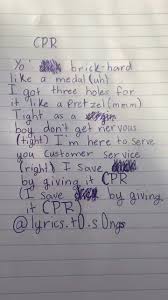 CPR
Yo brick-hard
like a medal (uh)
I got three holes for
it like a Pretzel (mmm)
Tight as a
boy don't get nervous
(tight) I'm here to serve
you customer service
(right) I save
by giving it CPR
(I save by giving
it CPR)
@lyrics.t0.s0ngs